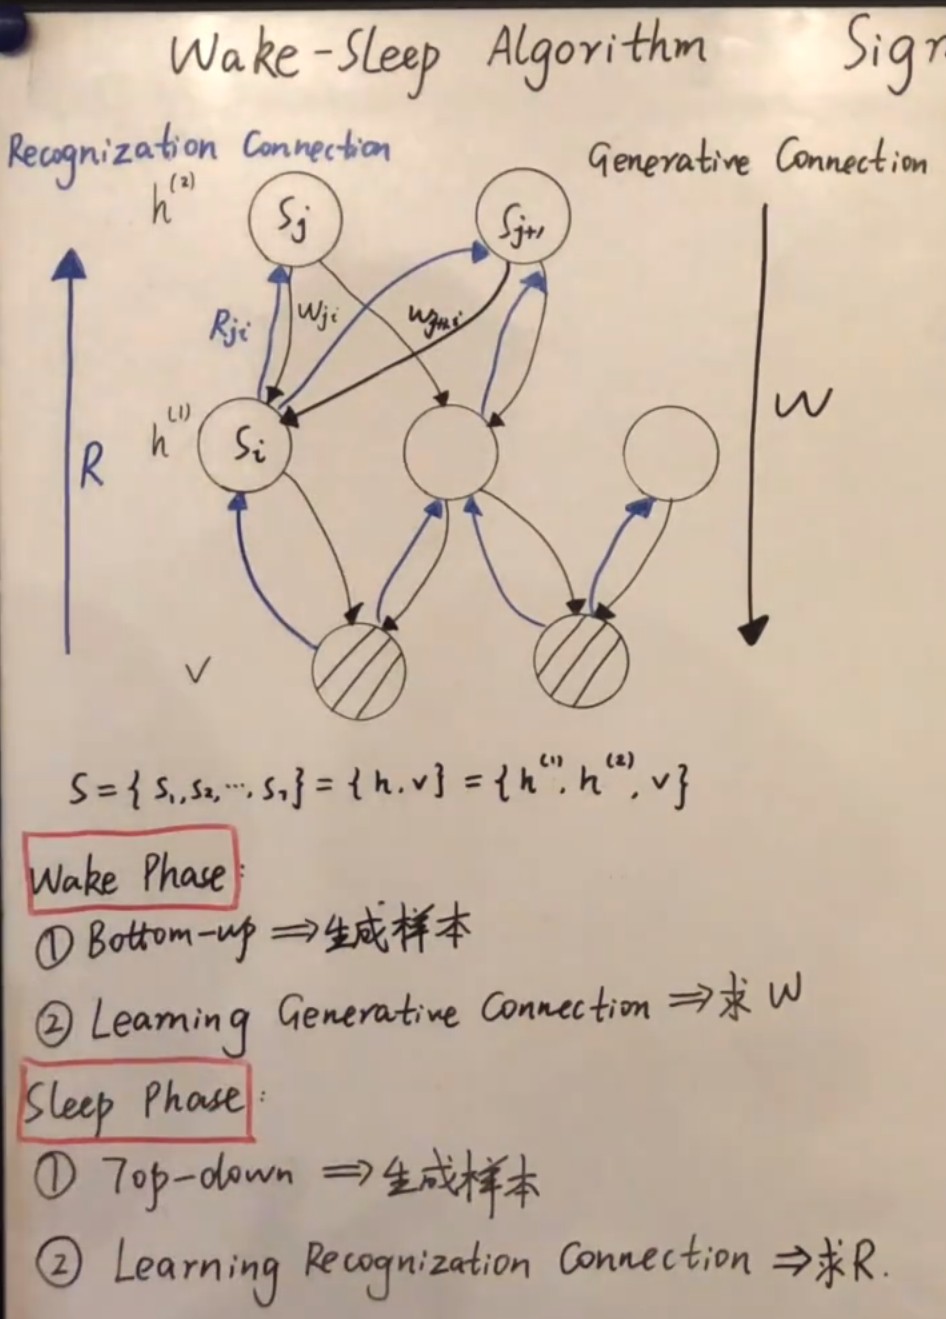 Wake-Sleep Algorithm
Recognization Connection
Generative Connection
h⁽²⁾
Sj
Sj+1
Rji
Wji
Wj+1,i
h⁽¹⁾
Si
R
W
V
S = { S₁, S₂, ⋯, S₇ } = { h, v } = { h⁽¹⁾, h⁽²⁾, v }
Wake Phase:
① Bottom-up ⇒ 生成样本
② Learning Generative Connection ⇒ 求 W
Sleep Phase:
① Top-down ⇒ 生成样本
② Learning Recognization Connection ⇒ 求R.